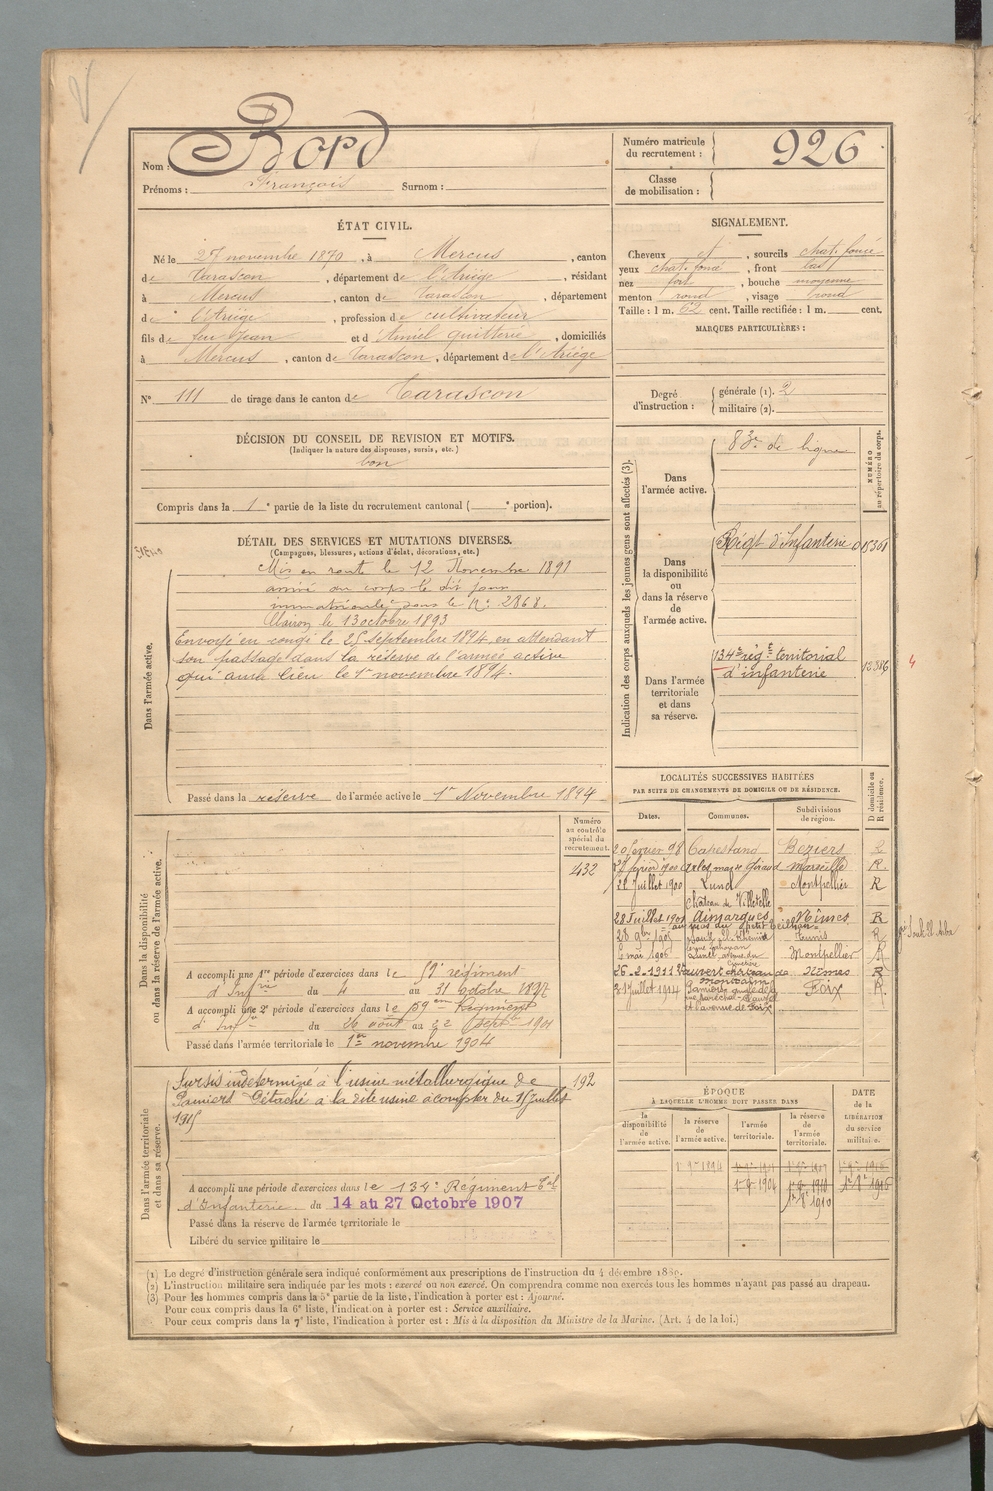 Nom : Bord
Prénoms : François Surnom :
Numéro matricule du recrutement : 926
Classe de mobilisation :
ÉTAT CIVIL.
Né le 27 novembre 1870, à Mercus, canton
de Tarascon, département de l'Ariège, résidant
à Mercus, canton de Tarascon, département
de l'Ariège, profession de cultivateur
fils de feu Jean et d'Amiel quitterie, domiciliés
à Mercus, canton de Tarascon, département de l'Ariège
N° 111 de tirage dans le canton de Tarascon
SIGNALEMENT.
Cheveux , sourcils chat. foncé
yeux chat. foncé, front bas
nez fort, bouche moyenne
menton rond, visage rond
Taille : 1 m. 62 cent. Taille rectifiée : 1 m. cent.
MARQUES PARTICULIÈRES :
Degré d'instruction : générale (1). 2
militaire (2).
DÉCISION DU CONSEIL DE REVISION ET MOTIFS.
(Indiquer la nature des dispenses, sursis, etc.)
bon
Compris dans la 1e partie de la liste du recrutement cantonal ( e portion).
DÉTAIL DES SERVICES ET MUTATIONS DIVERSES.
(Campagnes, blessures, actions d'éclat, décorations, etc.)
Dans l'armée active.
Mis en route le 12 Novembre 1891
arrivé au corps le dit jour
immatriculé sous le N° 2868.
Clairon le 13 octobre 1893
Envoyé en congé le 25 septembre 1894, en attendant
son passage dans la réserve de l'armée active
qui aura lieu le 1er novembre 1894.
Passé dans la réserve de l'armée active le 1er Novembre 1894
Indication des corps auxquels les jeunes gens sont affectés (3).
NUMÉRO au répertoire du corps.
Dans l'armée active.
83e de ligne
Dans la disponibilité ou dans la réserve de l'armée active.
Régt d'Infanterie
Dans l'armée territoriale et dans sa réserve.
134e régt territorial
d'infanterie
12386
4
Dans la disponibilité ou dans la réserve de l'armée active.
Numéro au contrôle spécial du recrutement.
432
A accompli une 1re période d'exercices dans le 59e régiment
d'Infrie du 4 au 31 octobre 1897
A accompli une 2e période d'exercices dans le 59eme Régiment
d'Infie du 26 août au 22 sept. 1901
Passé dans l'armée territoriale le 1er novembre 1904
Dans l'armée territoriale et dans sa réserve.
Sursis indéterminé à l'usine métallurgique de
Pamiers Détaché à la dite usine à compter du 15 Juillet
1915
192
A accompli une période d'exercices dans le 134e Régiment Tal
d'Infanterie du 14 au 27 Octobre 1907
Passé dans la réserve de l'armée territoriale le
Libéré du service militaire le
LOCALITÉS SUCCESSIVES HABITÉES
PAR SUITE DE CHANGEMENTS DE DOMICILE OU DE RÉSIDENCE.
Dates. Communes. Subdivisions de région. D domicile ou R résidence.
20 février 98 Capestang Béziers R
27 février 1900 Arles Marseille R.
22 Juillet 1900 Lunel Montpellier R
Château de Villetelle
28 Juillet 1901 Aimargues Nîmes R
28 9bre 1905 Souk el Khemis Tunis R
mai 1906 Lunel Montpellier R
26-2-1911 Vauvert château de Nîmes R
Montcalm
Juillet 1914 Pamiers Foix R.
et l'avenue de Foix
ÉPOQUE
À LAQUELLE L'HOMME DOIT PASSER DANS
la disponibilité de l'armée active.
la réserve de l'armée active.
l'armée territoriale.
la réserve de l'armée territoriale.
DATE de la LIBÉRATION du service militaire.
1er 9re 1894
(1) Le degré d'instruction générale sera indiqué conformément aux prescriptions de l'instruction du 4 décembre 1889.
(2) L'instruction militaire sera indiquée par les mots : exercé ou non exercé. On comprendra comme non exercés tous les hommes n'ayant pas passé au drapeau.
(3) Pour les hommes compris dans la 5e partie de la liste, l'indication à porter est : Ajourné.
Pour ceux compris dans la 6e liste, l'indication à porter est : Service auxiliaire.
Pour ceux compris dans la 7e liste, l'indication à porter est : Mis à la disposition du Ministre de la Marine. (Art. 4 de la loi.)